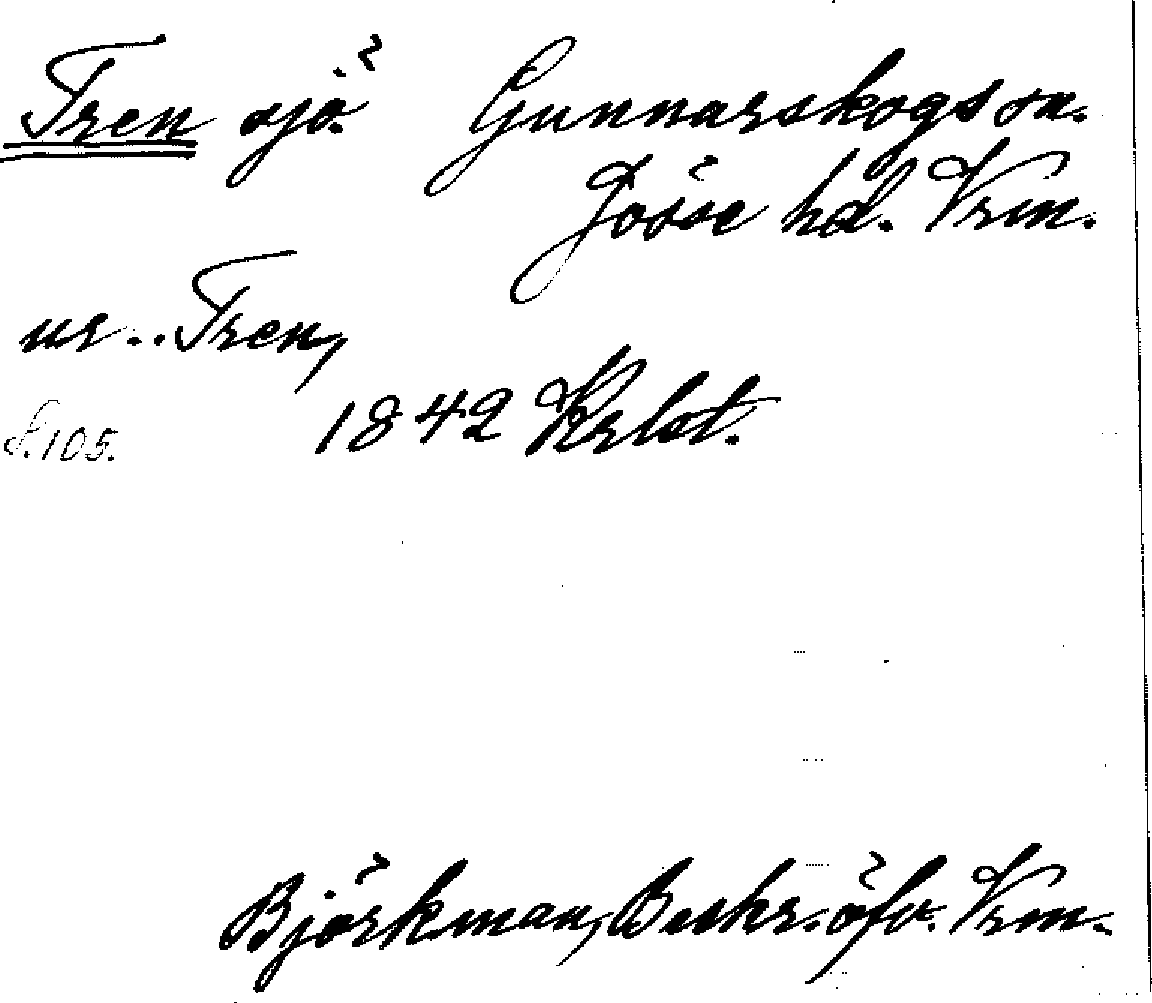 Tren sjö. Gunnarskogs sn.
Jösse hd. Vrm.
ur .. Tren,
S. 105. 1842 Krlst.
Björkman, Beskr. öfv. Vrm.